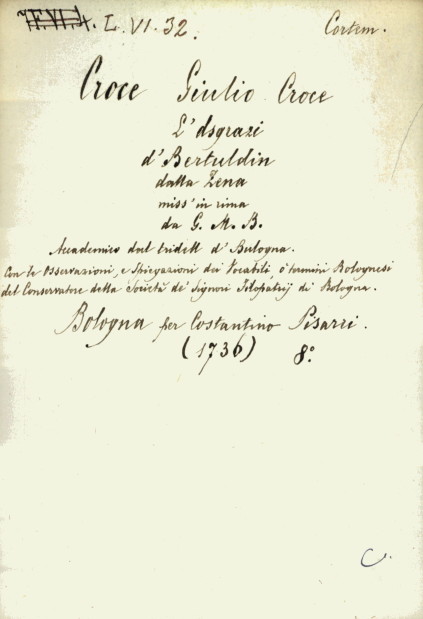 L. VI. 32. Cortem.
Croce Giulio Croce
L' dsgrazi
d' Bertuldin
dalla Zena
miss' in rima
da G. M. B.
Accademico dul tridell d' Bulogna.
Con le Osservazioni, e Spiegazioni dei Vocaboli, o termini Bolognesi
del Conservatore della Società de' Signori Filopatrij di Bologna.
Bologna per Costantino Pisarri.
(1736) 8.°
C.